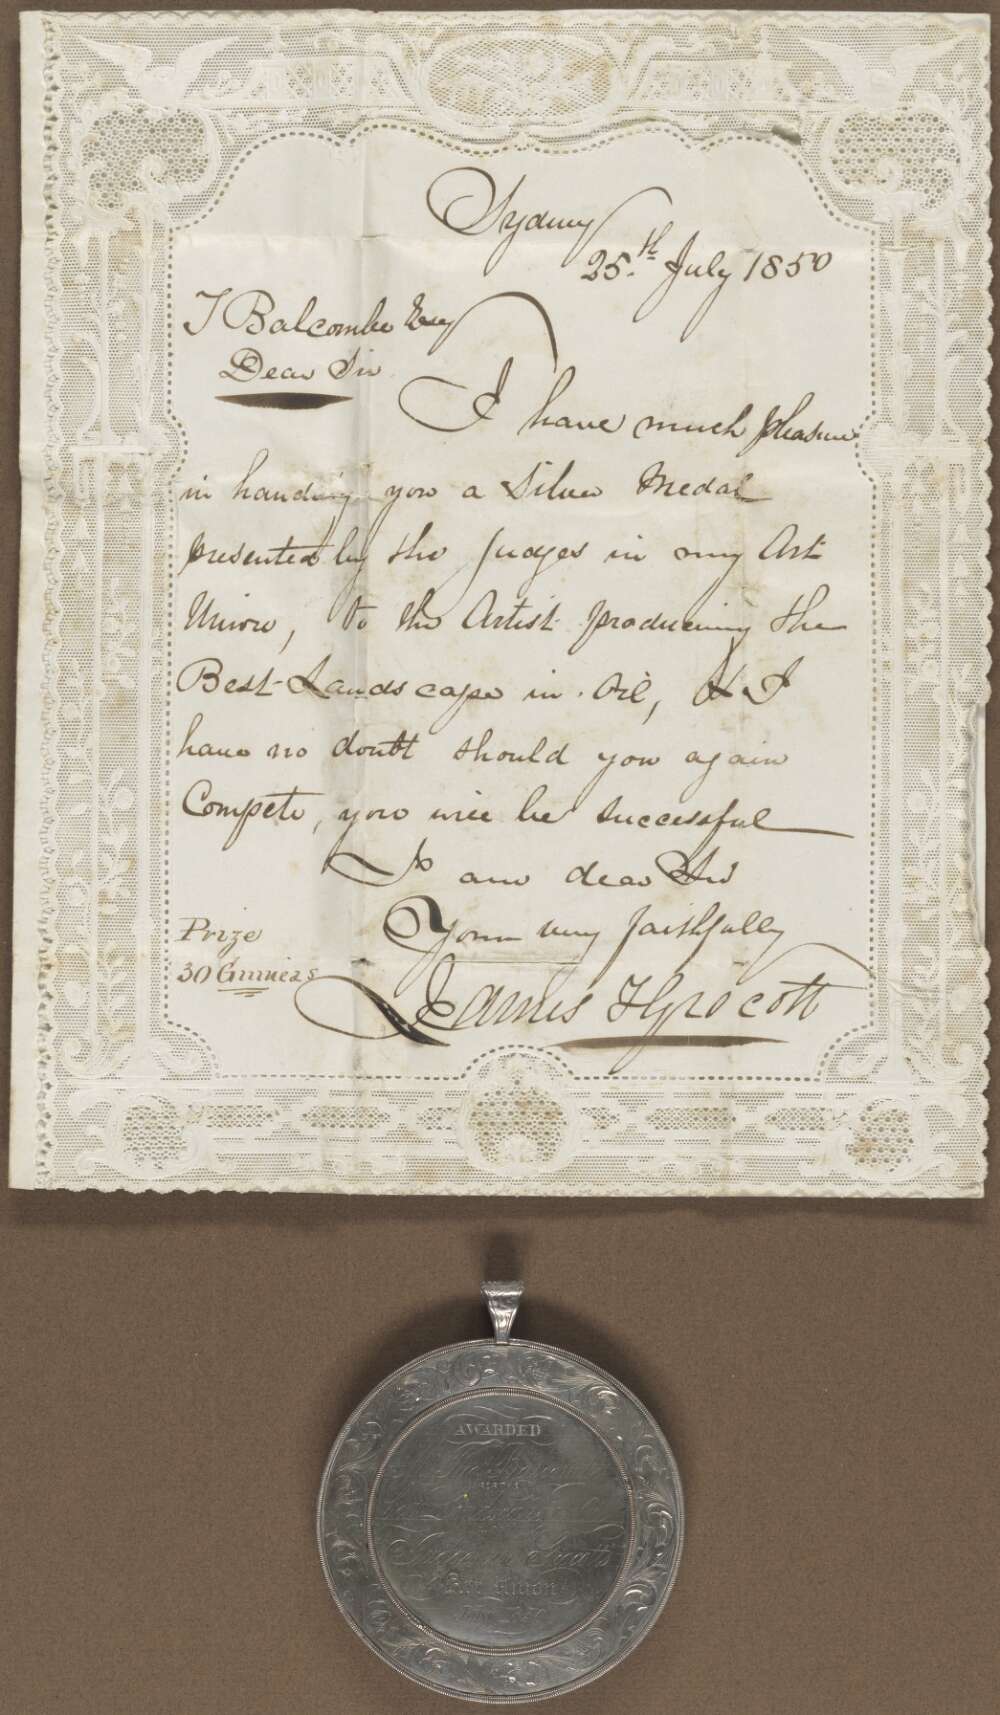 Sydney
25.th July 1850
T Balcombe Esq
Dear Sir
I have much pleasure
in handing you a Silver Medal
presented by the Judges in my Art
Union, to the Artist producing the
Best Landscape in Oil, & I
have no doubt should you again
Compete, you will be successful
I am dear Sir
Yours very faithfully
James Grocott
Prize
30 Guineas
AWARDED
Art Union